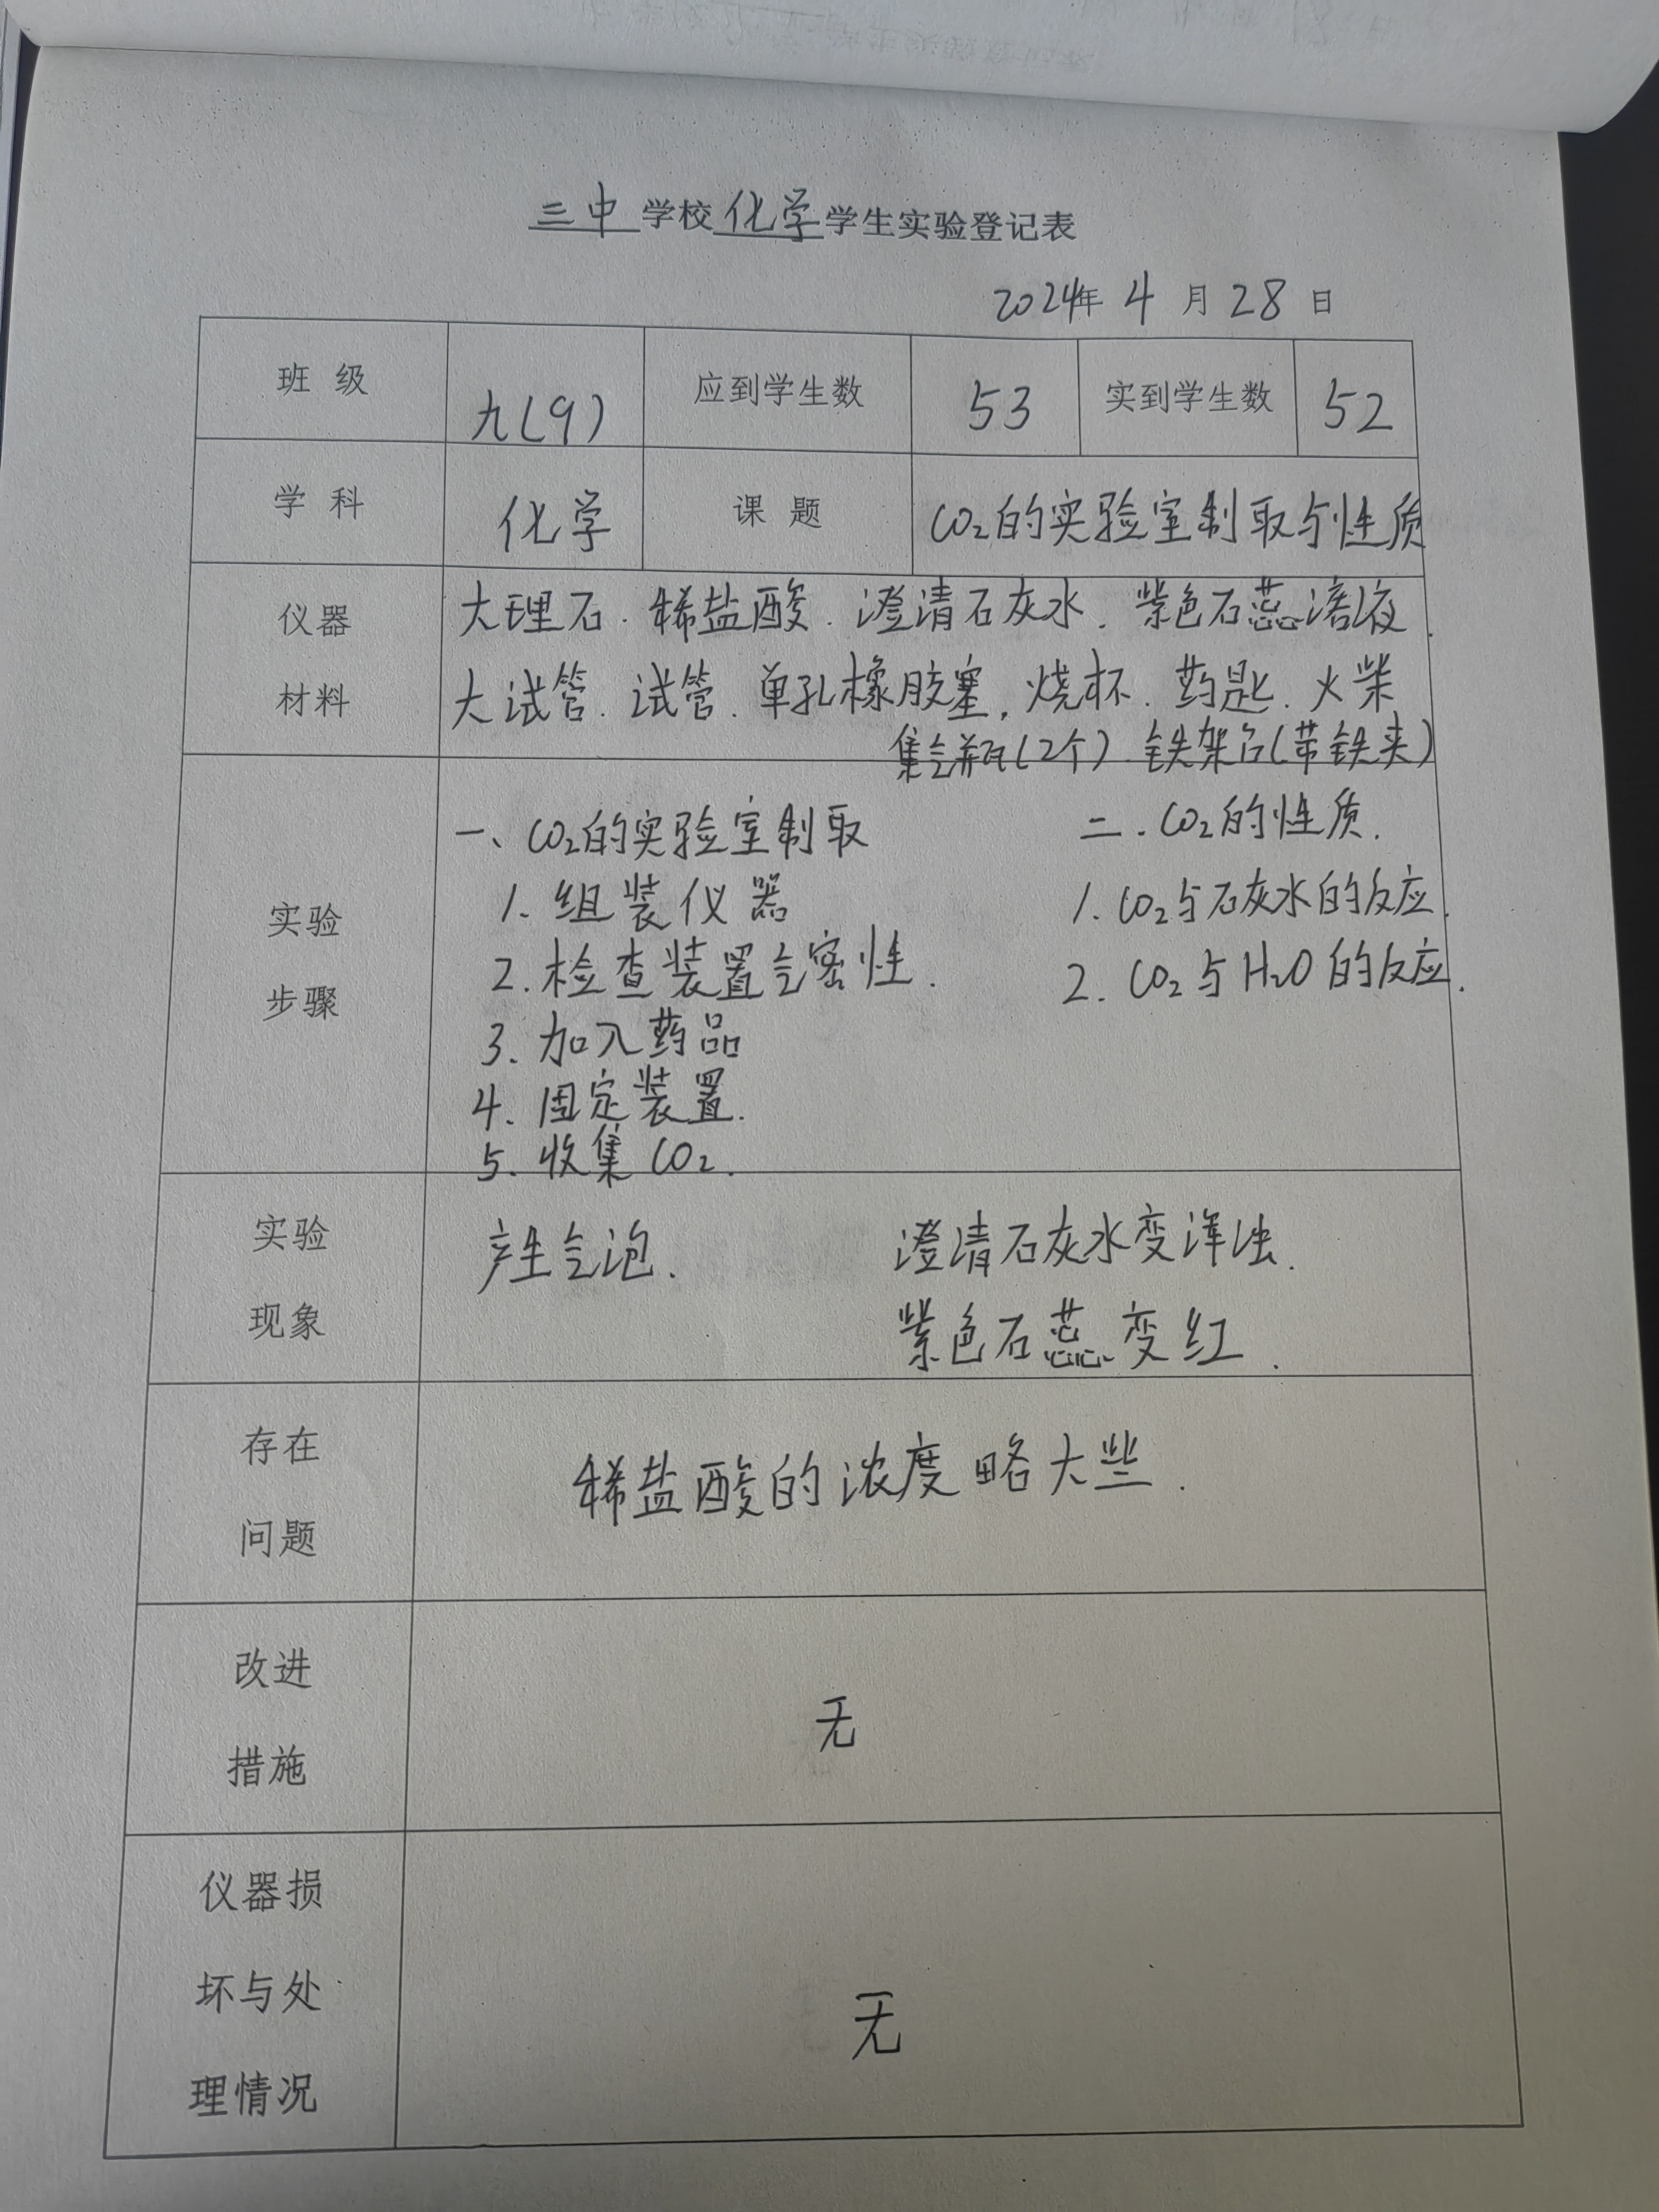 三中学校化学学生实验登记表
2024年4月28日
班级 九(9) 应到学生数 53 实到学生数 52
学科 化学 课题 CO₂的实验室制取与性质
仪器 大理石.稀盐酸.澄清石灰水.紫色石蕊溶液.
材料 大试管.试管.单孔橡胶塞,烧杯.药匙.火柴
集气瓶(2个).铁架台(带铁夹)
一、CO₂的实验室制取 二.CO₂的性质.
实验 1.组装仪器 1.CO₂与石灰水的反应.
2.检查装置气密性. 2.CO₂与H₂O的反应.
步骤 3.加入药品
4.固定装置.
5.收集CO₂.
实验 产生气泡. 澄清石灰水变浑浊.
现象 紫色石蕊变红.
存在 稀盐酸的浓度略大些.
问题
改进
无
措施
仪器损
坏与处 无
理情况